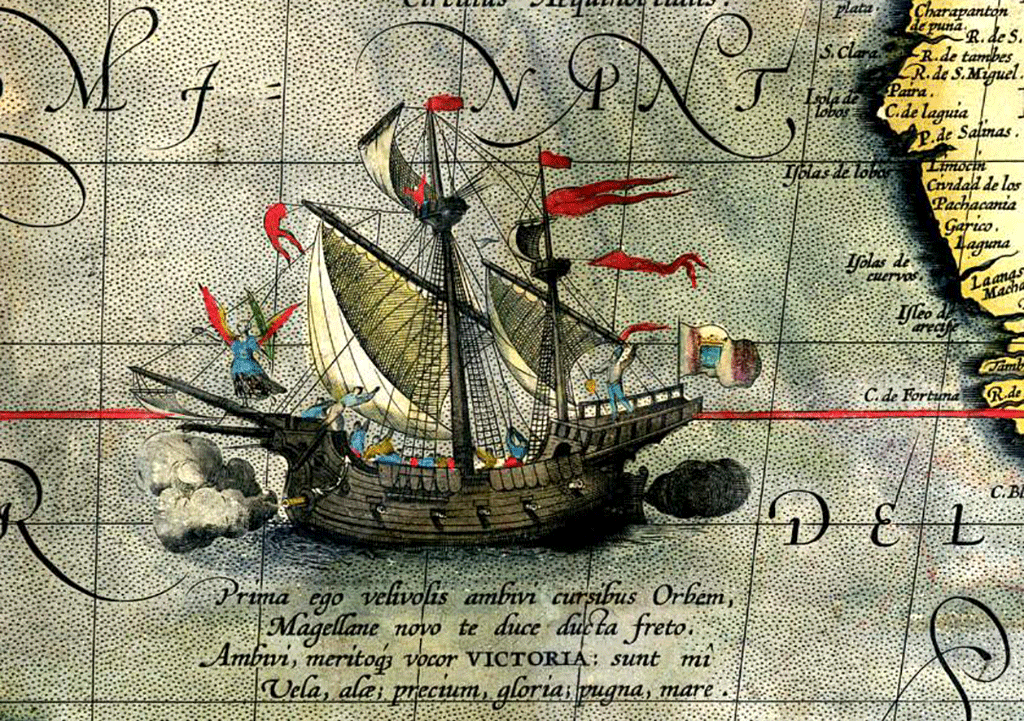 Circulus Aequinoctialis.
plata
Charapanton
de puna.
R. de S.
S. Clara.
R. de tambes
R. de S. Miguel.
Paira.
M I =
Isola de
lobos
C. de laguia
P. de Salinas.
Isolas de lobos
Limocin
Cividad de los
Pachacania
Garico.
Laguna
Isolas de
cuervos.
Isleo de
arecife
C. de Fortuna
R. de
R
DEL
Prima ego velivolis ambivi cursibus Orbem,
Magellane novo te duce ducta freto.
Ambivi, meritoq́ꝫ vocor VICTORIA: sunt mî
Vela, alæ; precium, gloria; pugna, mare.